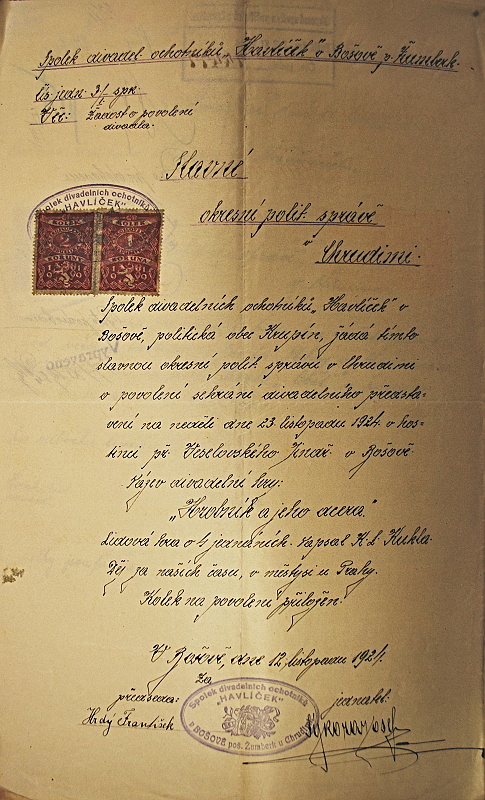 Spolek divadel. ochotníků „Havlíček" v Bošově p. Žumberk.
čís. jedn. 3/1 spr.
Věc: Žádost o povolení
divadla.
Slavné
okresní polit. správě
v Chrudimi.
Spolek divadelních ochotníků
"HAVLÍČEK"
KOLEK
KOLEK
2
1
KORUNY
KORUNA
Spolek divadelních ochotníků „Havlíček" v
Bošově, politická obec Krupín, žádá tímto
slavnou okresní polit. správu v Chrudimi
o povolení sehrání divadelního předsta-
vení na neděli dne 23. listopadu 1924 v hos-
tinci př. Veselovského v Bošově.
Název divadelní hry:
„Hrobník a jeho dcera."
Lidová hra o 4 jednáních. Napsal K. L. Kukla.
Děj za našich časů, v městysi u Prahy.
Kolek na povolení přiložen.
V Bošově, dne 12. listopadu 1924.
Za
předseda:
jednatel:
Hrdý František
Spolek divadelních ochotníků
"HAVLÍČEK"
v BOŠOVĚ poš. Žumberk u Chrudimě